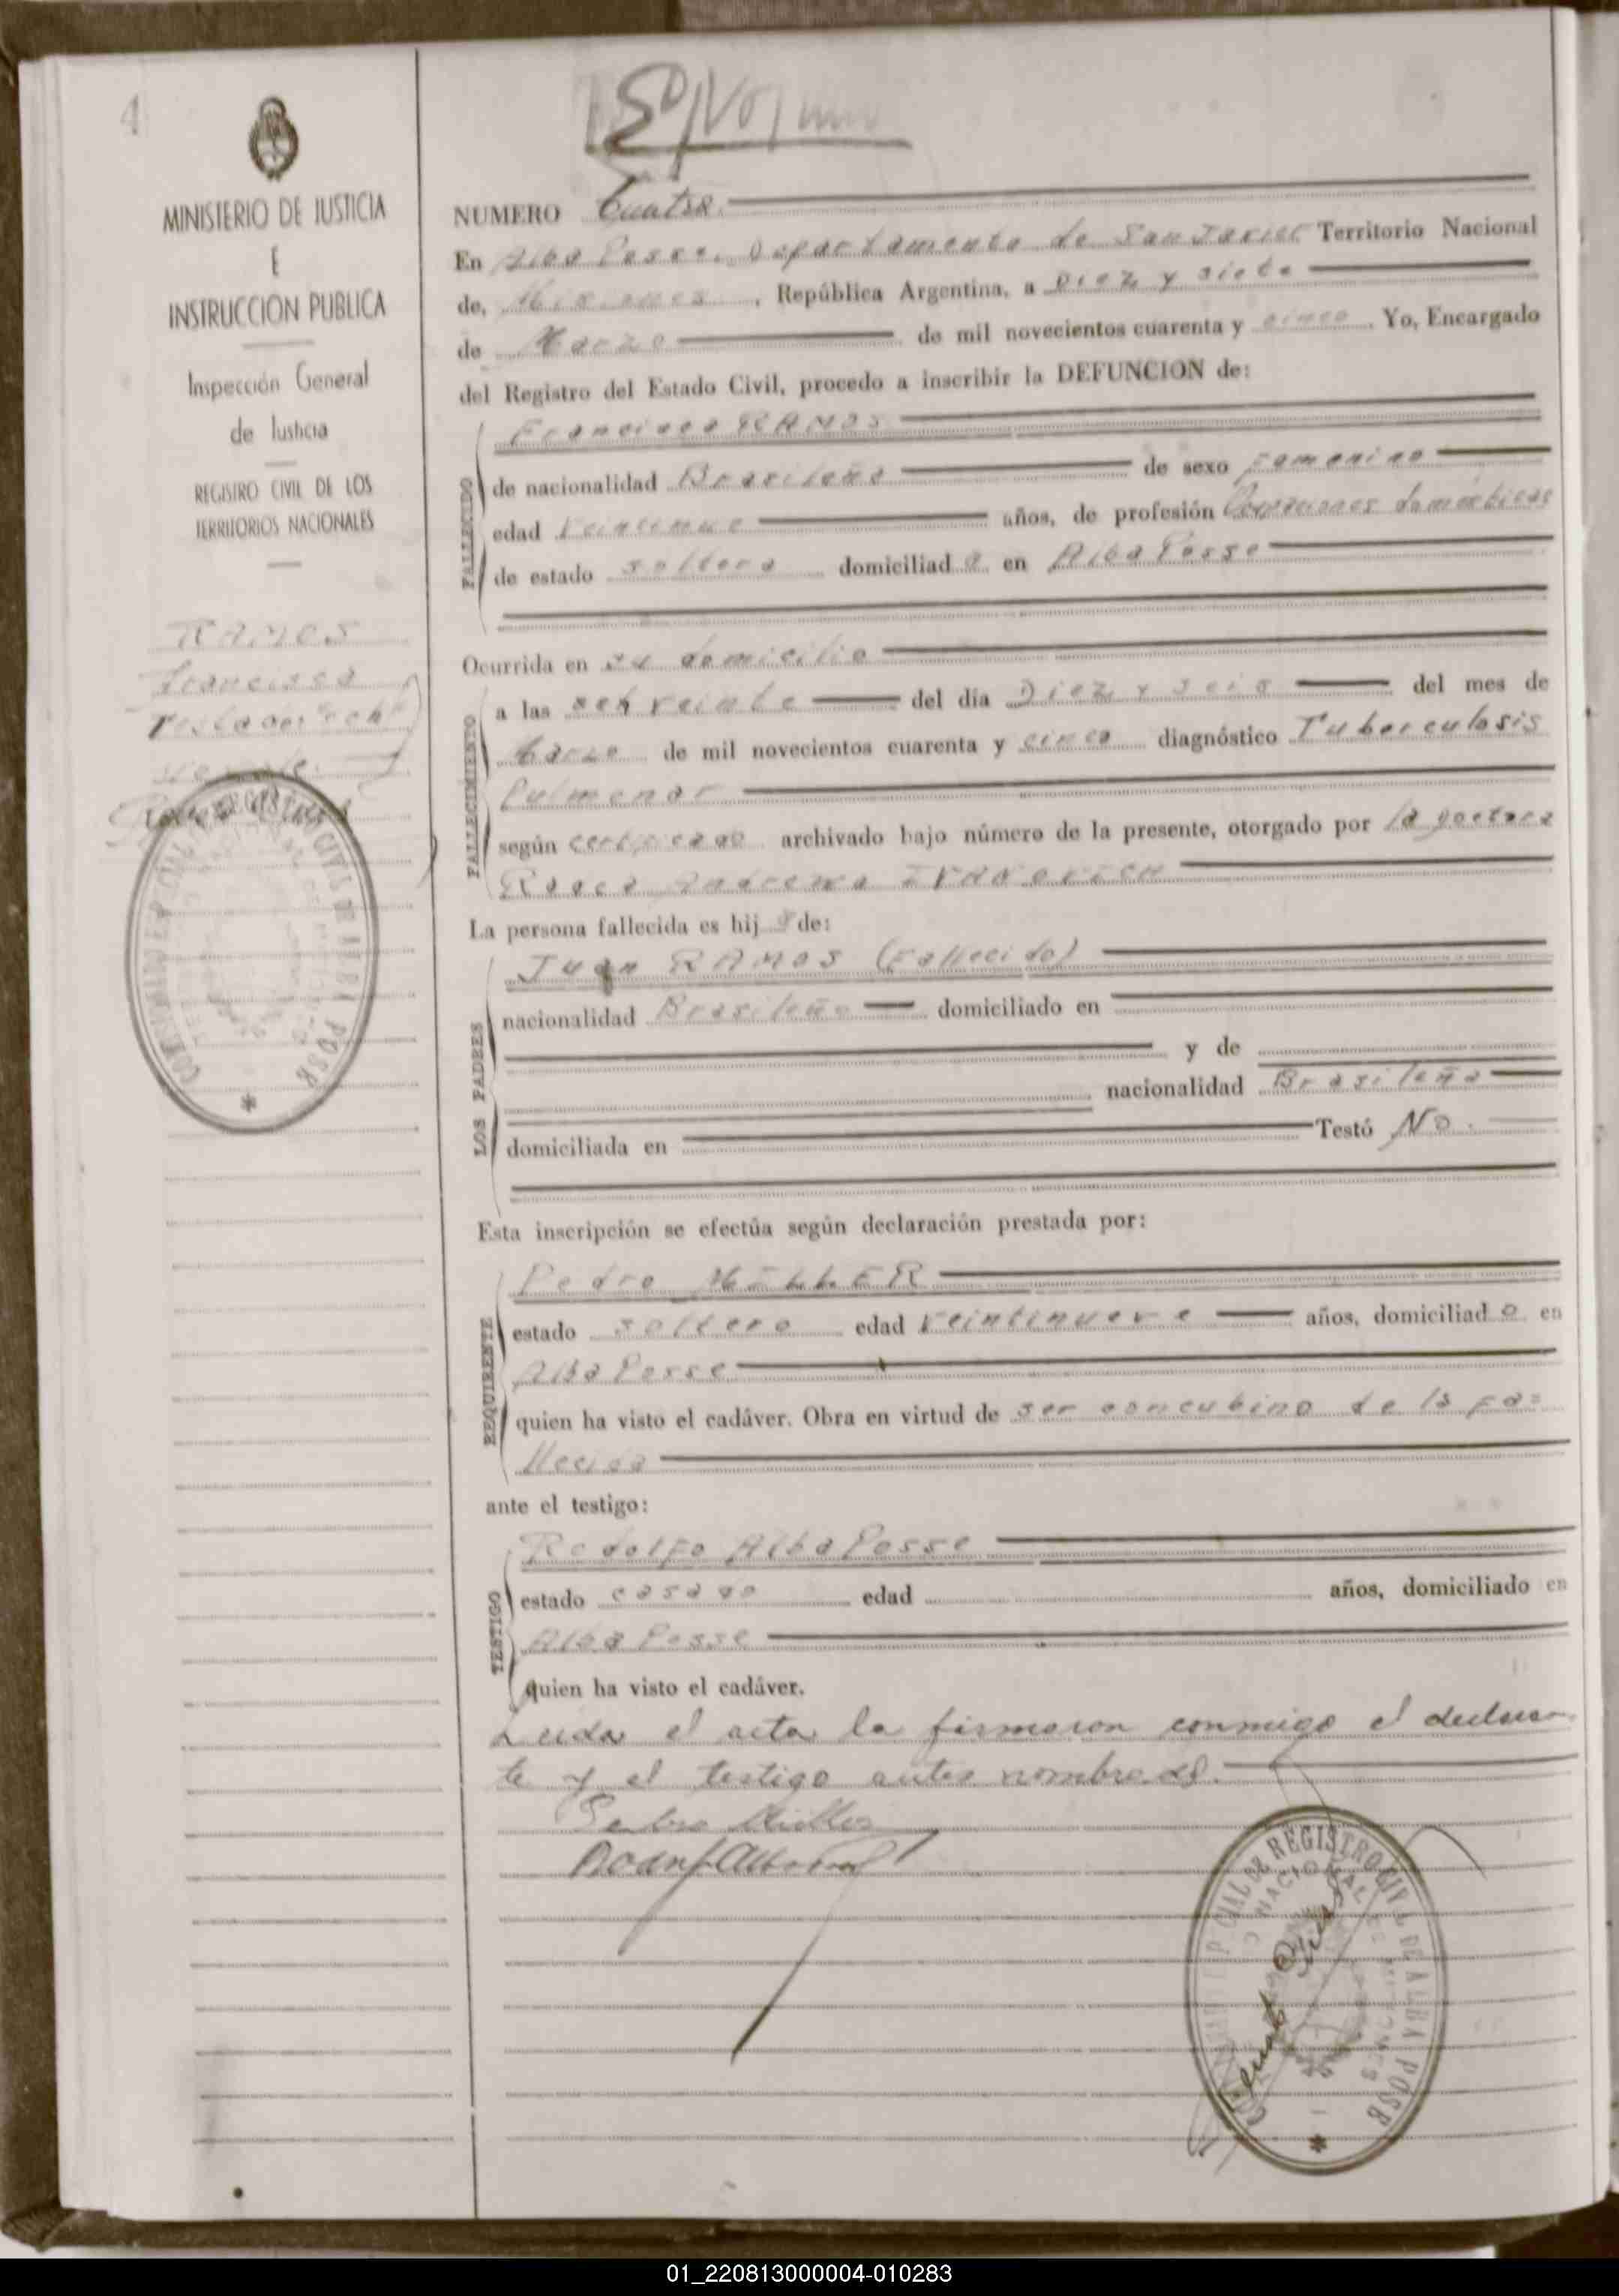 4
MINISTERIO DE JUSTICIA
E
INSTRUCCION PUBLICA
Inspección General
de Justicia
REGISTRO CIVIL DE LOS
TERRITORIOS NACIONALES
RAMOS
Francisca
NUMERO Cuatro
En Alba Posse, Departamento de San Javier Territorio Nacional
de, Misiones, República Argentina, a Diez y siete
de Marzo de mil novecientos cuarenta y cinco. Yo, Encargado
del Registro del Estado Civil, procedo a inscribir la DEFUNCION de:
FALLECIDO
Francisca RAMOS
de nacionalidad Brasileña de sexo Femenino
edad Veintinue años, de profesión domésticas
de estado soltera domiciliada en Alba Posse
Ocurrida en su domicilio
FALLECIMIENTO
a las veinte del día Diez y seis del mes de
Marzo de mil novecientos cuarenta y cinco diagnóstico Tuberculosis
Pulmonar
según certificado archivado bajo número de la presente, otorgado por la doctora
La persona fallecida es hija de:
LOS PADRES
Juan RAMOS (Fallecido)
nacionalidad Brasileño domiciliado en
y de
nacionalidad Brasileña
domiciliada en Testó No.
Esta inscripción se efectúa según declaración prestada por:
REQUIRENTE
Pedro MILLER
estado soltero edad veintinueve años, domiciliado en
Alba Posse
quien ha visto el cadáver. Obra en virtud de ser concubino de la fa=
llecida
ante el testigo:
TESTIGO
Rodolfo Alba Posse
estado casado edad años, domiciliado en
Alba Posse
quien ha visto el cadáver.
Leida el acta la firmaron conmigo el declaran-
te y el testigo antes nombrados.
Pedro Miller
REGISTRO CIVIL DE ALBA POSE
01_220813000004-010283